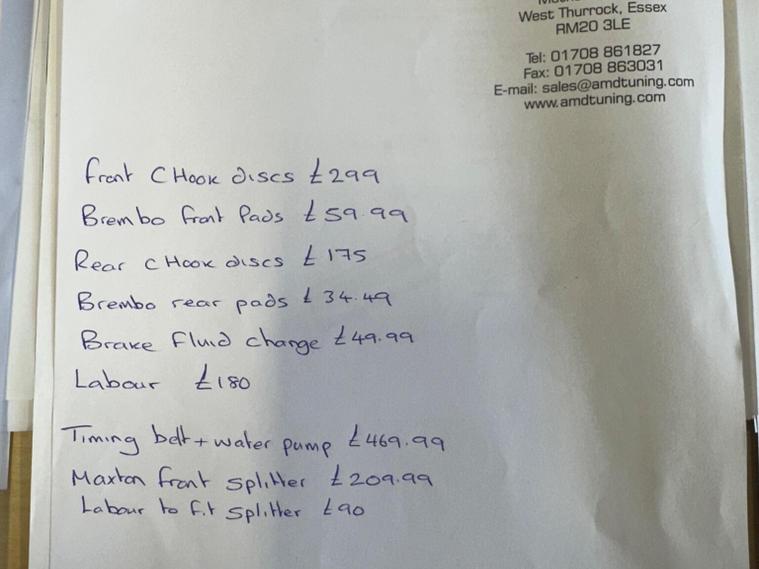 West Thurrock, Essex
RM20 3LE
Tel: 01708 861827
Fax: 01708 863031
E-mail: sales@amdtuning.com
www.amdtuning.com
Front C Hook discs £299
Brembo front Pads £59.99
Rear C Hook discs £175
Brembo rear pads £34.49
Brake Fluid change £49.99
Labour £180
Timing belt + water pump £469.99
Maxton front splitter £209.99
Labour to fit splitter £90